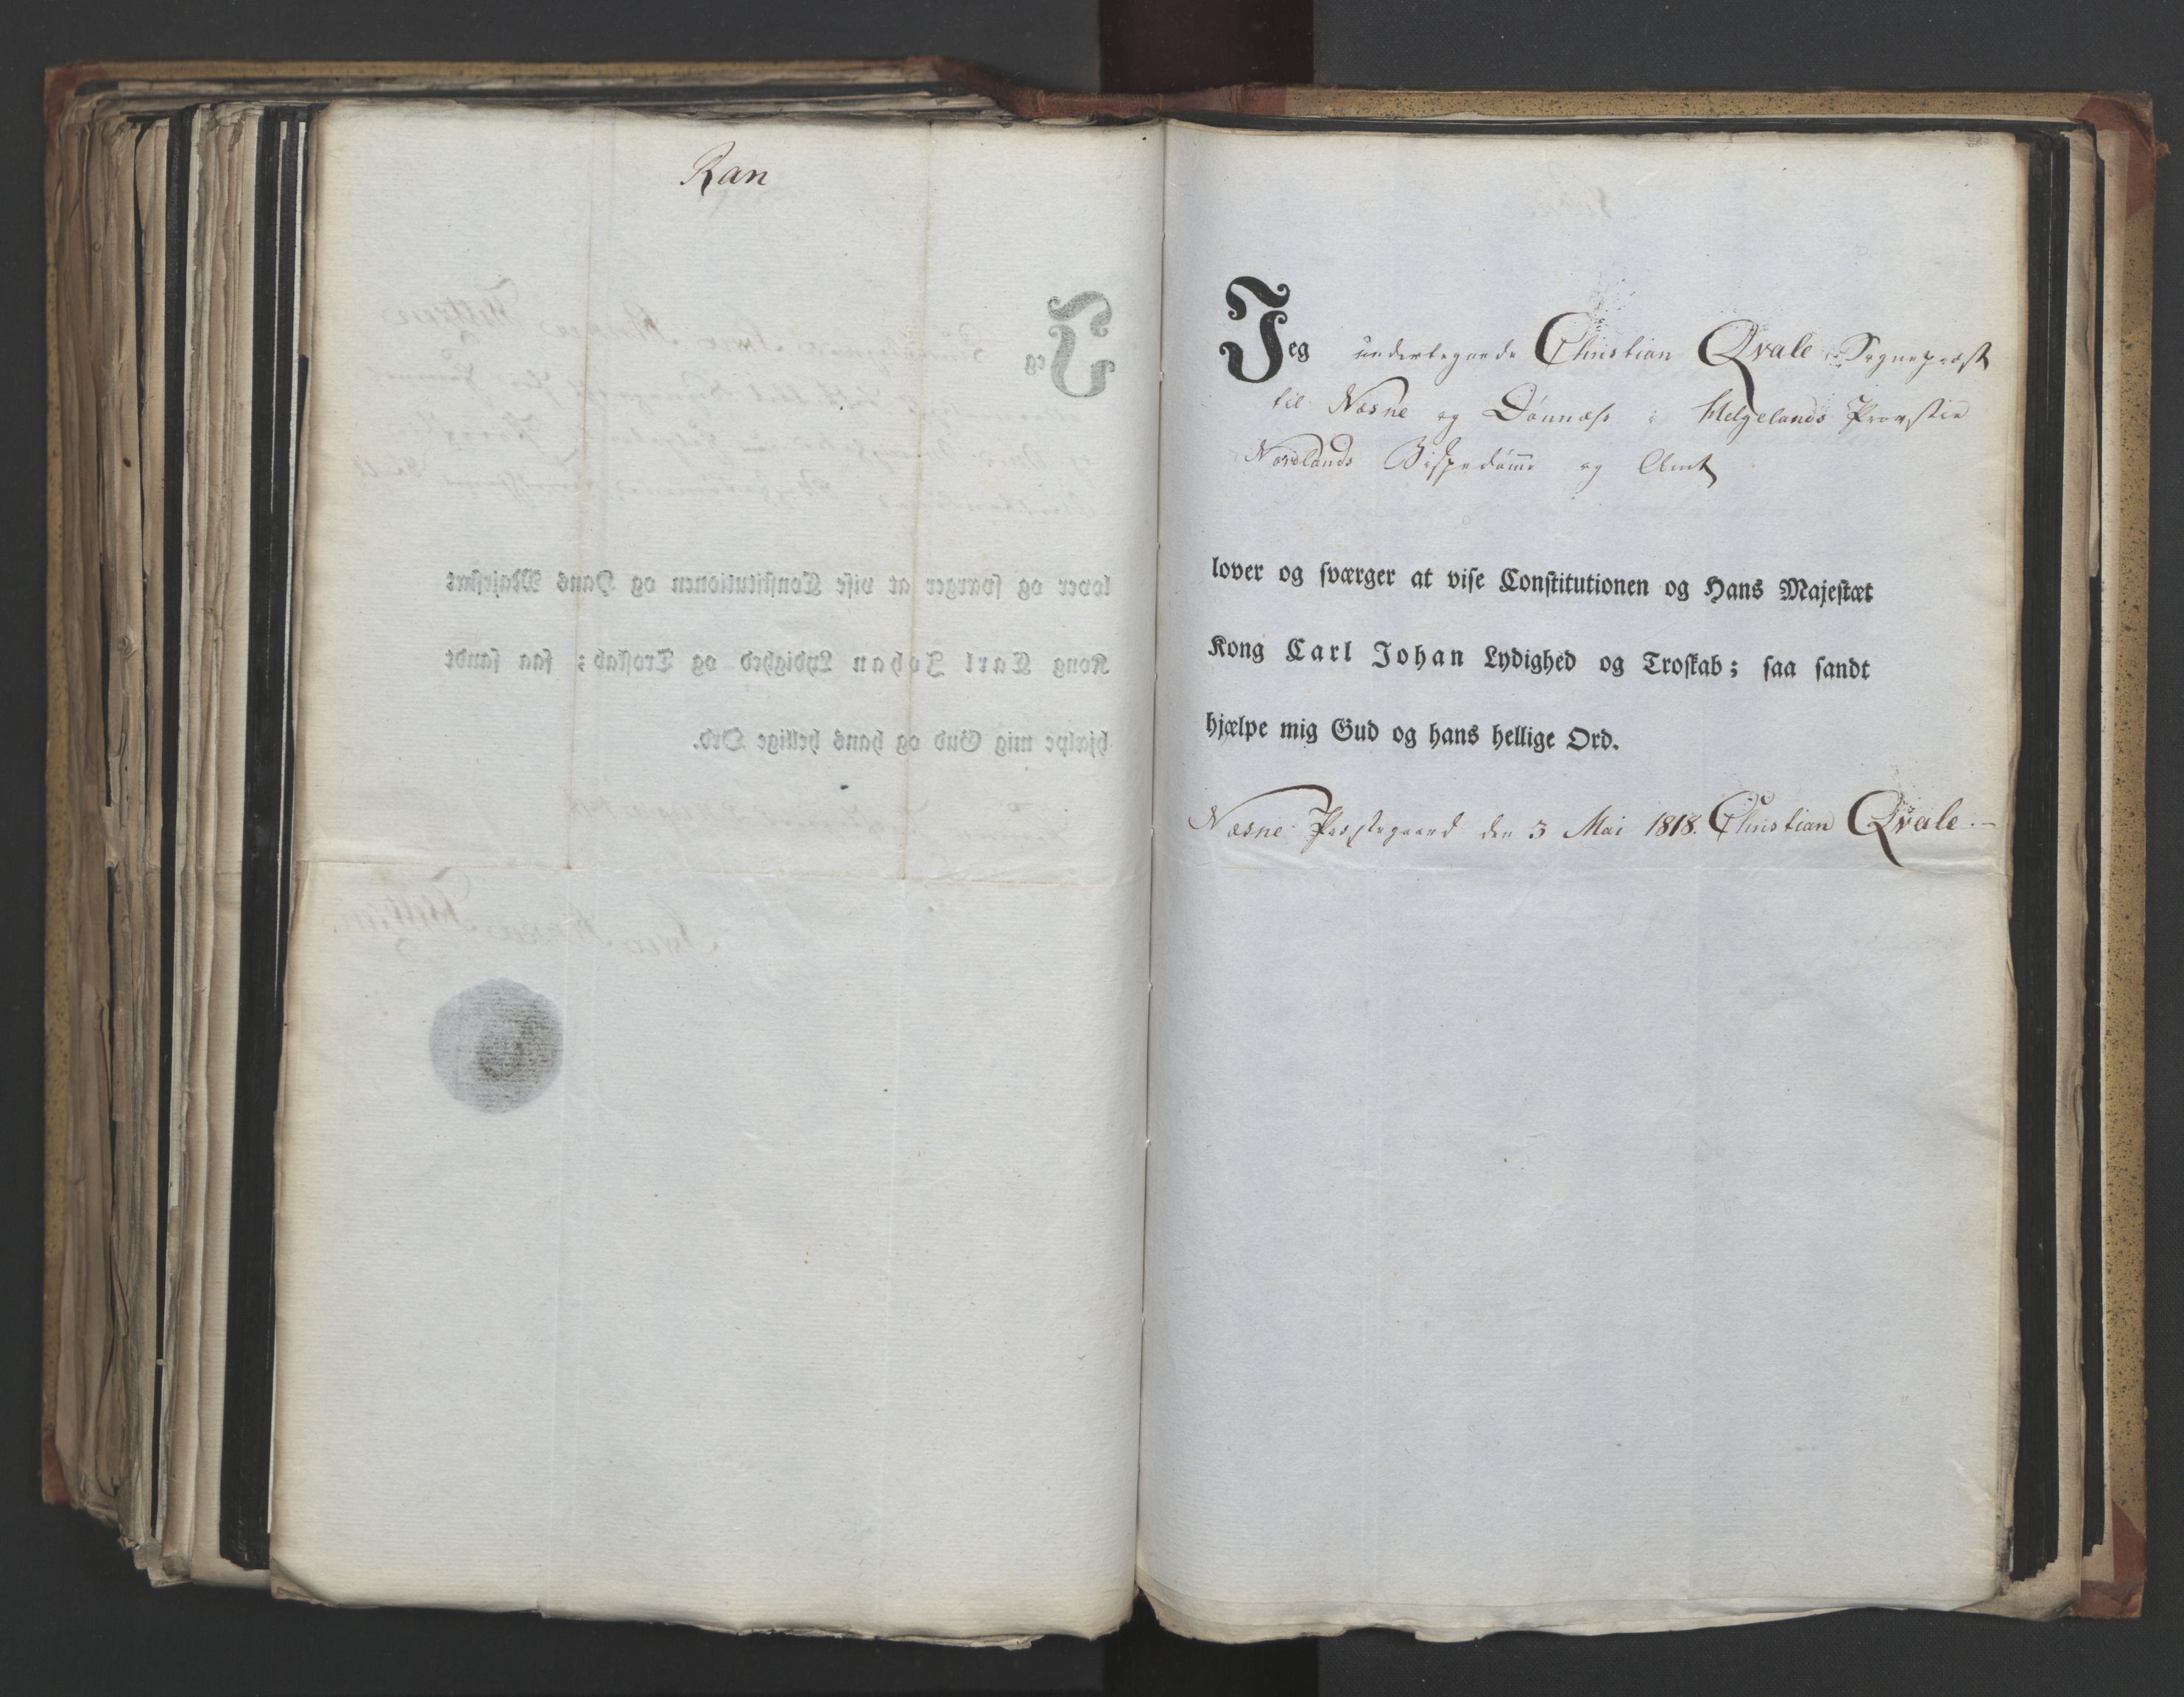 Ran
Jeg undertegnede Christian Qvale Sognepræst
til Næsne og Dønnæs i Helgelands Provstie
Nordlands Bispedømme og Amt
lover og sværger at vise Constitutionen og Hans Majestæt
Kong Carl Johan Lydighed og Troskab; saa sandt
hjælpe mig Gud og hans hellige Ord.
Næsne Præstegaard den 3 Mai 1818. Christian Qvale.